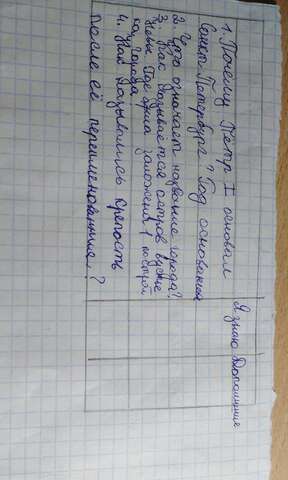 Я знаю Дополнение
1. Почему Петр I основал
Санкт-Петербург? Год основания
2. Что означает название города?
3. Как называется остров в устье
Невы. Где была заложена 1 постройка
города
4. Как называлась крепость
после её переименования?